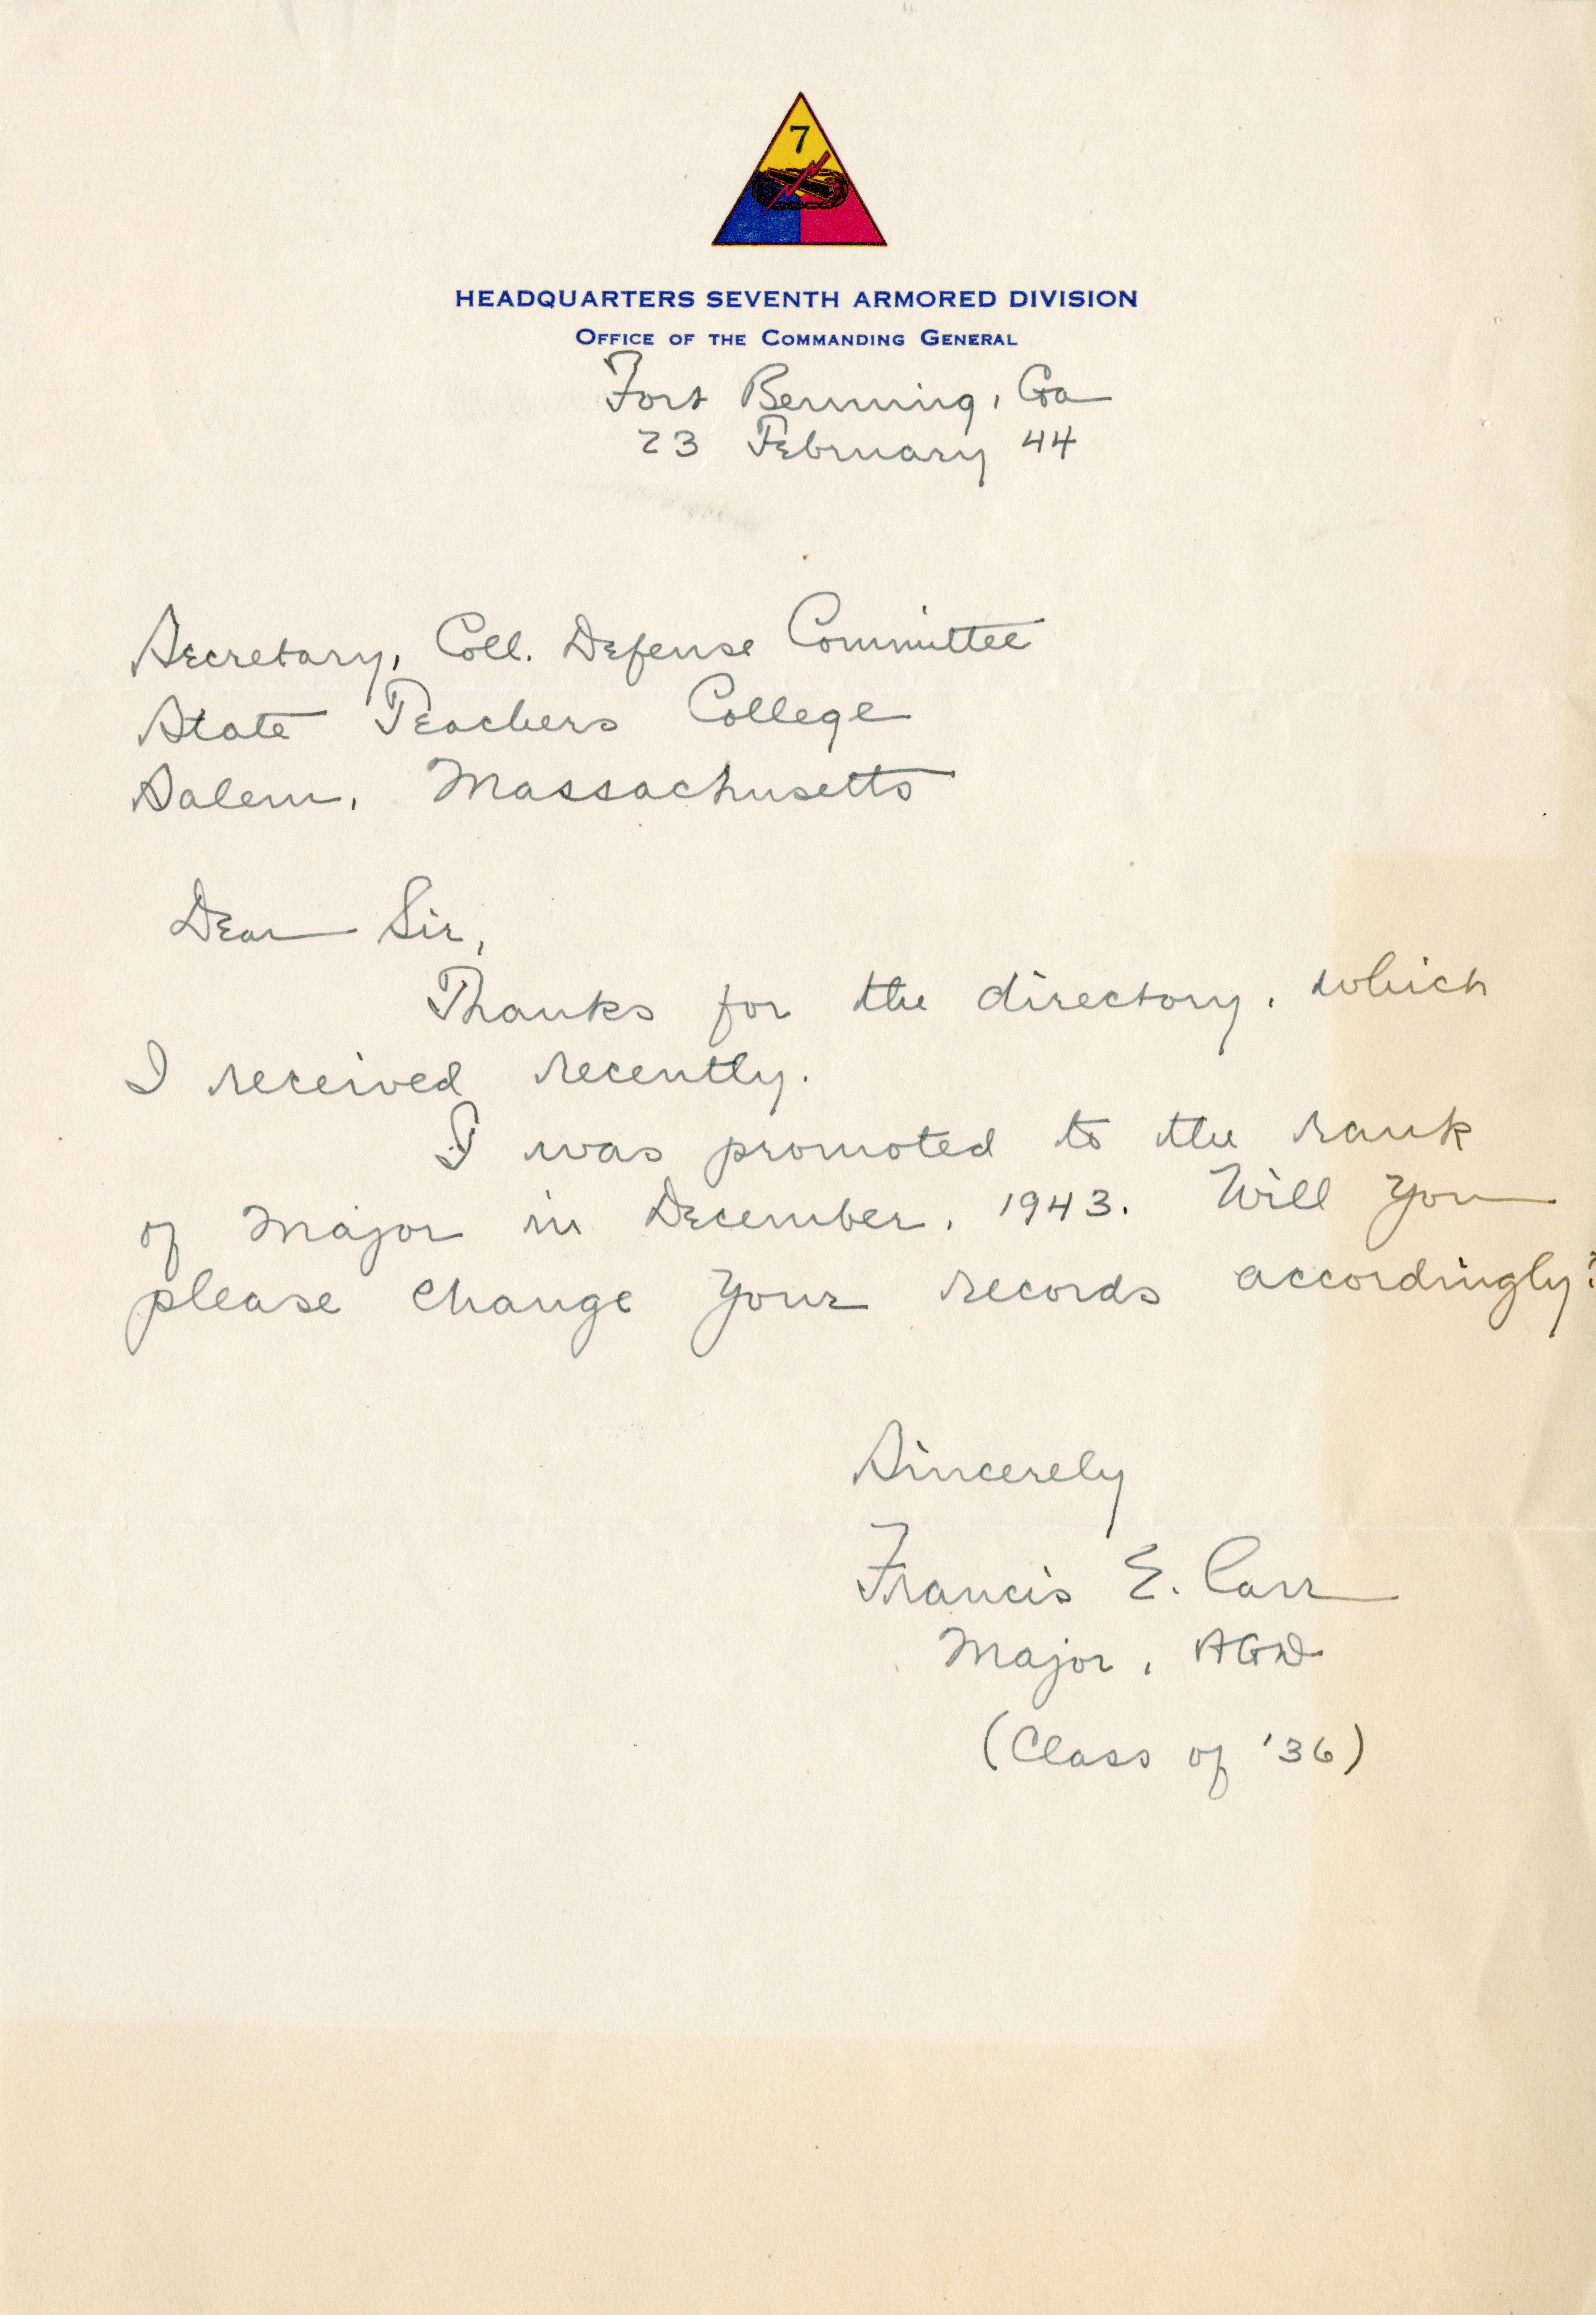 7
HEADQUARTERS SEVENTH ARMORED DIVISION
OFFICE OF THE COMMANDING GENERAL
Fort Benning, Ga
23 February 44
Secretary, Coll. Defense Committee
State Teachers College
Salem, Massachusetts
Dear Sir,
Thanks for the directory, which
I received recently.
I was promoted to the rank
of Major in December, 1943. Will you
please change your records accordingly?
Sincerely
Francis E. Carr
Major, AGD
(Class of '36)